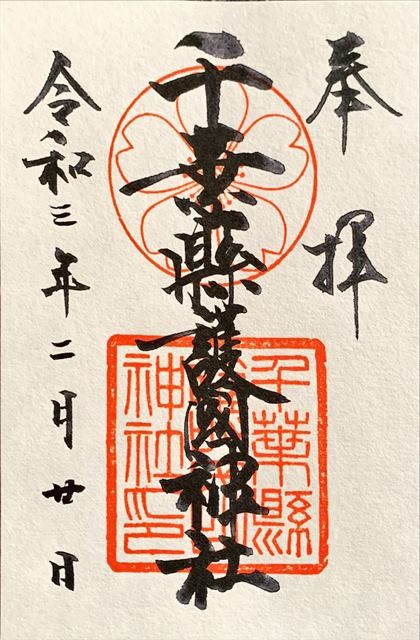 奉拝
千葉縣護國神社
令和三年二月廿日
千葉縣
護國
神社印